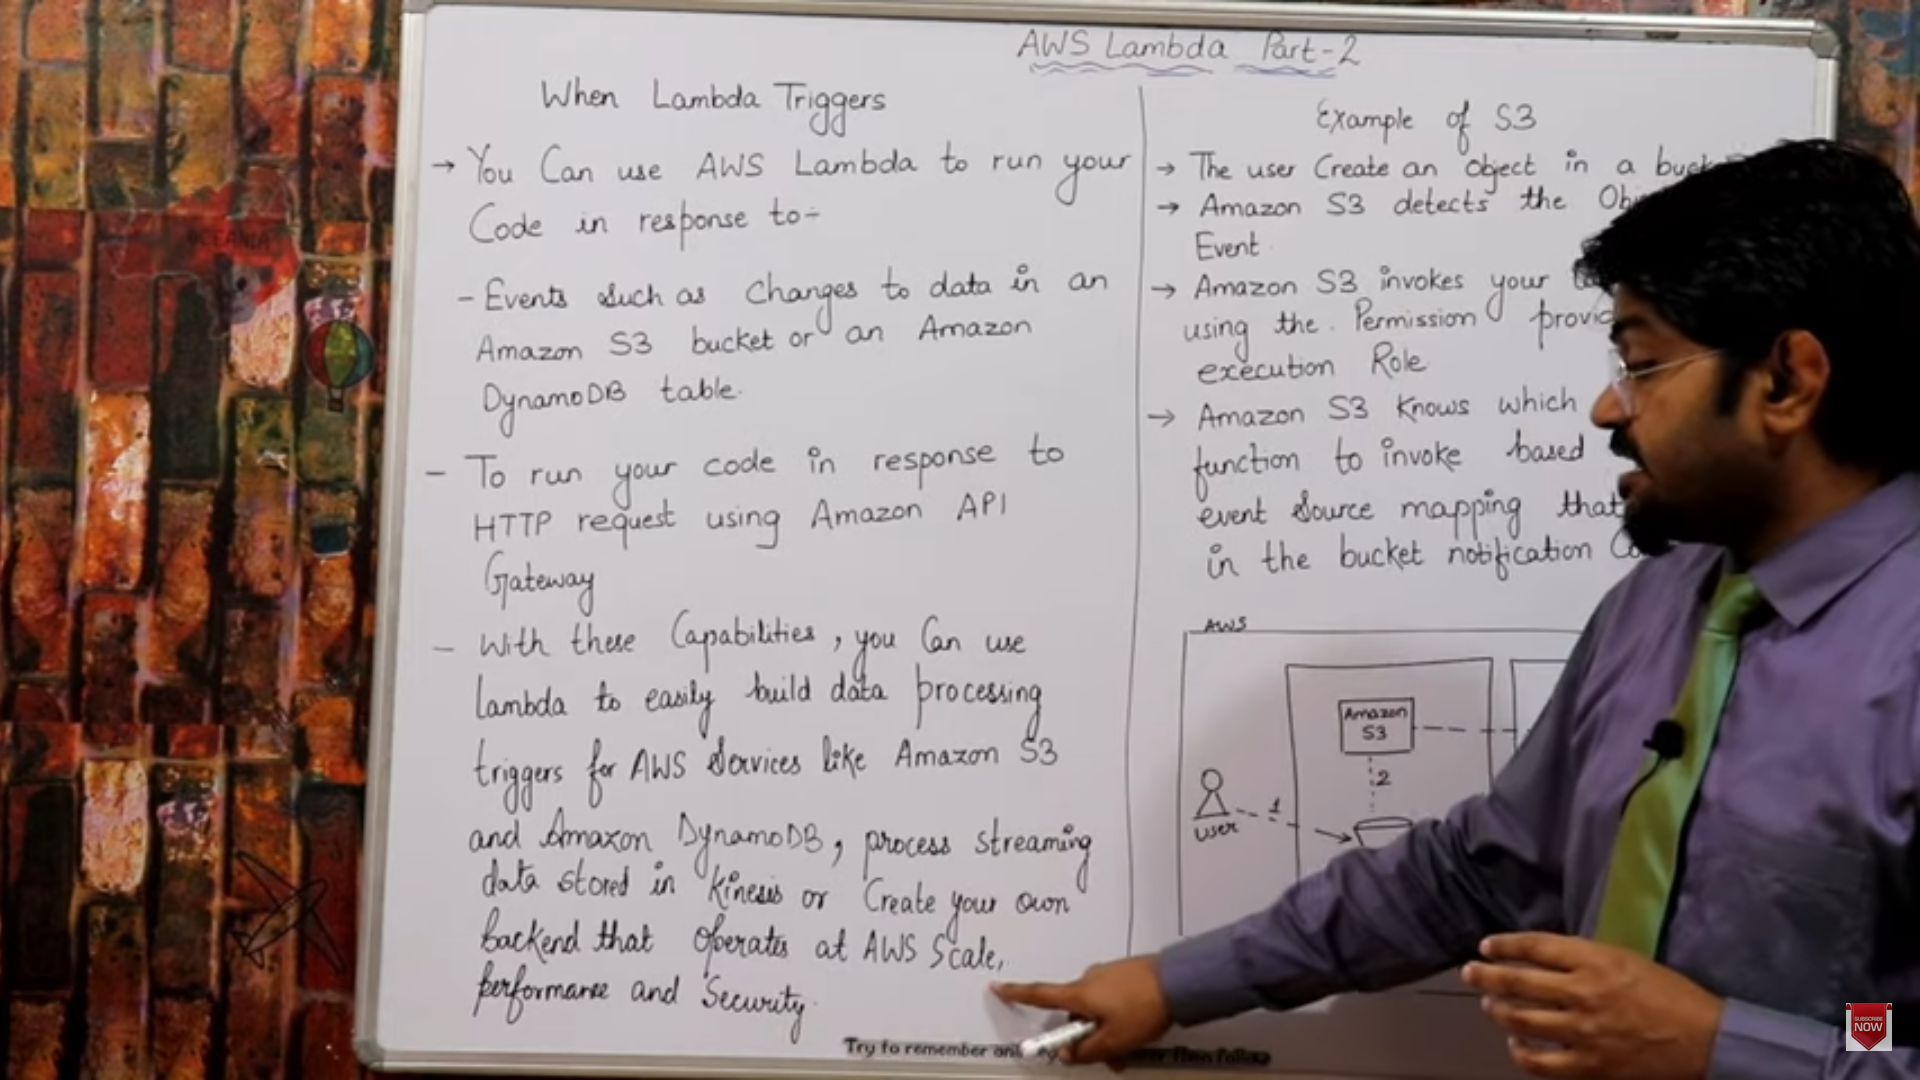 AWS Lambda Part-2
When Lambda Triggers
→ You Can use AWS Lambda to run your
Code in response to:-
- Events such as Changes to data in an
Amazon S3 bucket or an Amazon
DynamoDB table.
- To run your code in response to
HTTP request using Amazon API
Gateway
- With these Capabilities, you Can use
lambda to easily build data processing
triggers for AWS Services like Amazon S3
and Amazon DynamoDB, process streaming
data stored in Kinesis or Create your own
backend that operates at AWS Scale,
performance and Security.
Example of S3
→ The user Create an Object in a
→ Amazon S3 detects the
Event
→ Amazon S3 invokes your
using the Permission
execution Role
→ Amazon S3 Knows which
function to invoke based
event Source mapping that
in the bucket notification
AWS
Amazon
S3
2
1
user
Try to remember
SUBSCRIBE
NOW
OCEANIA